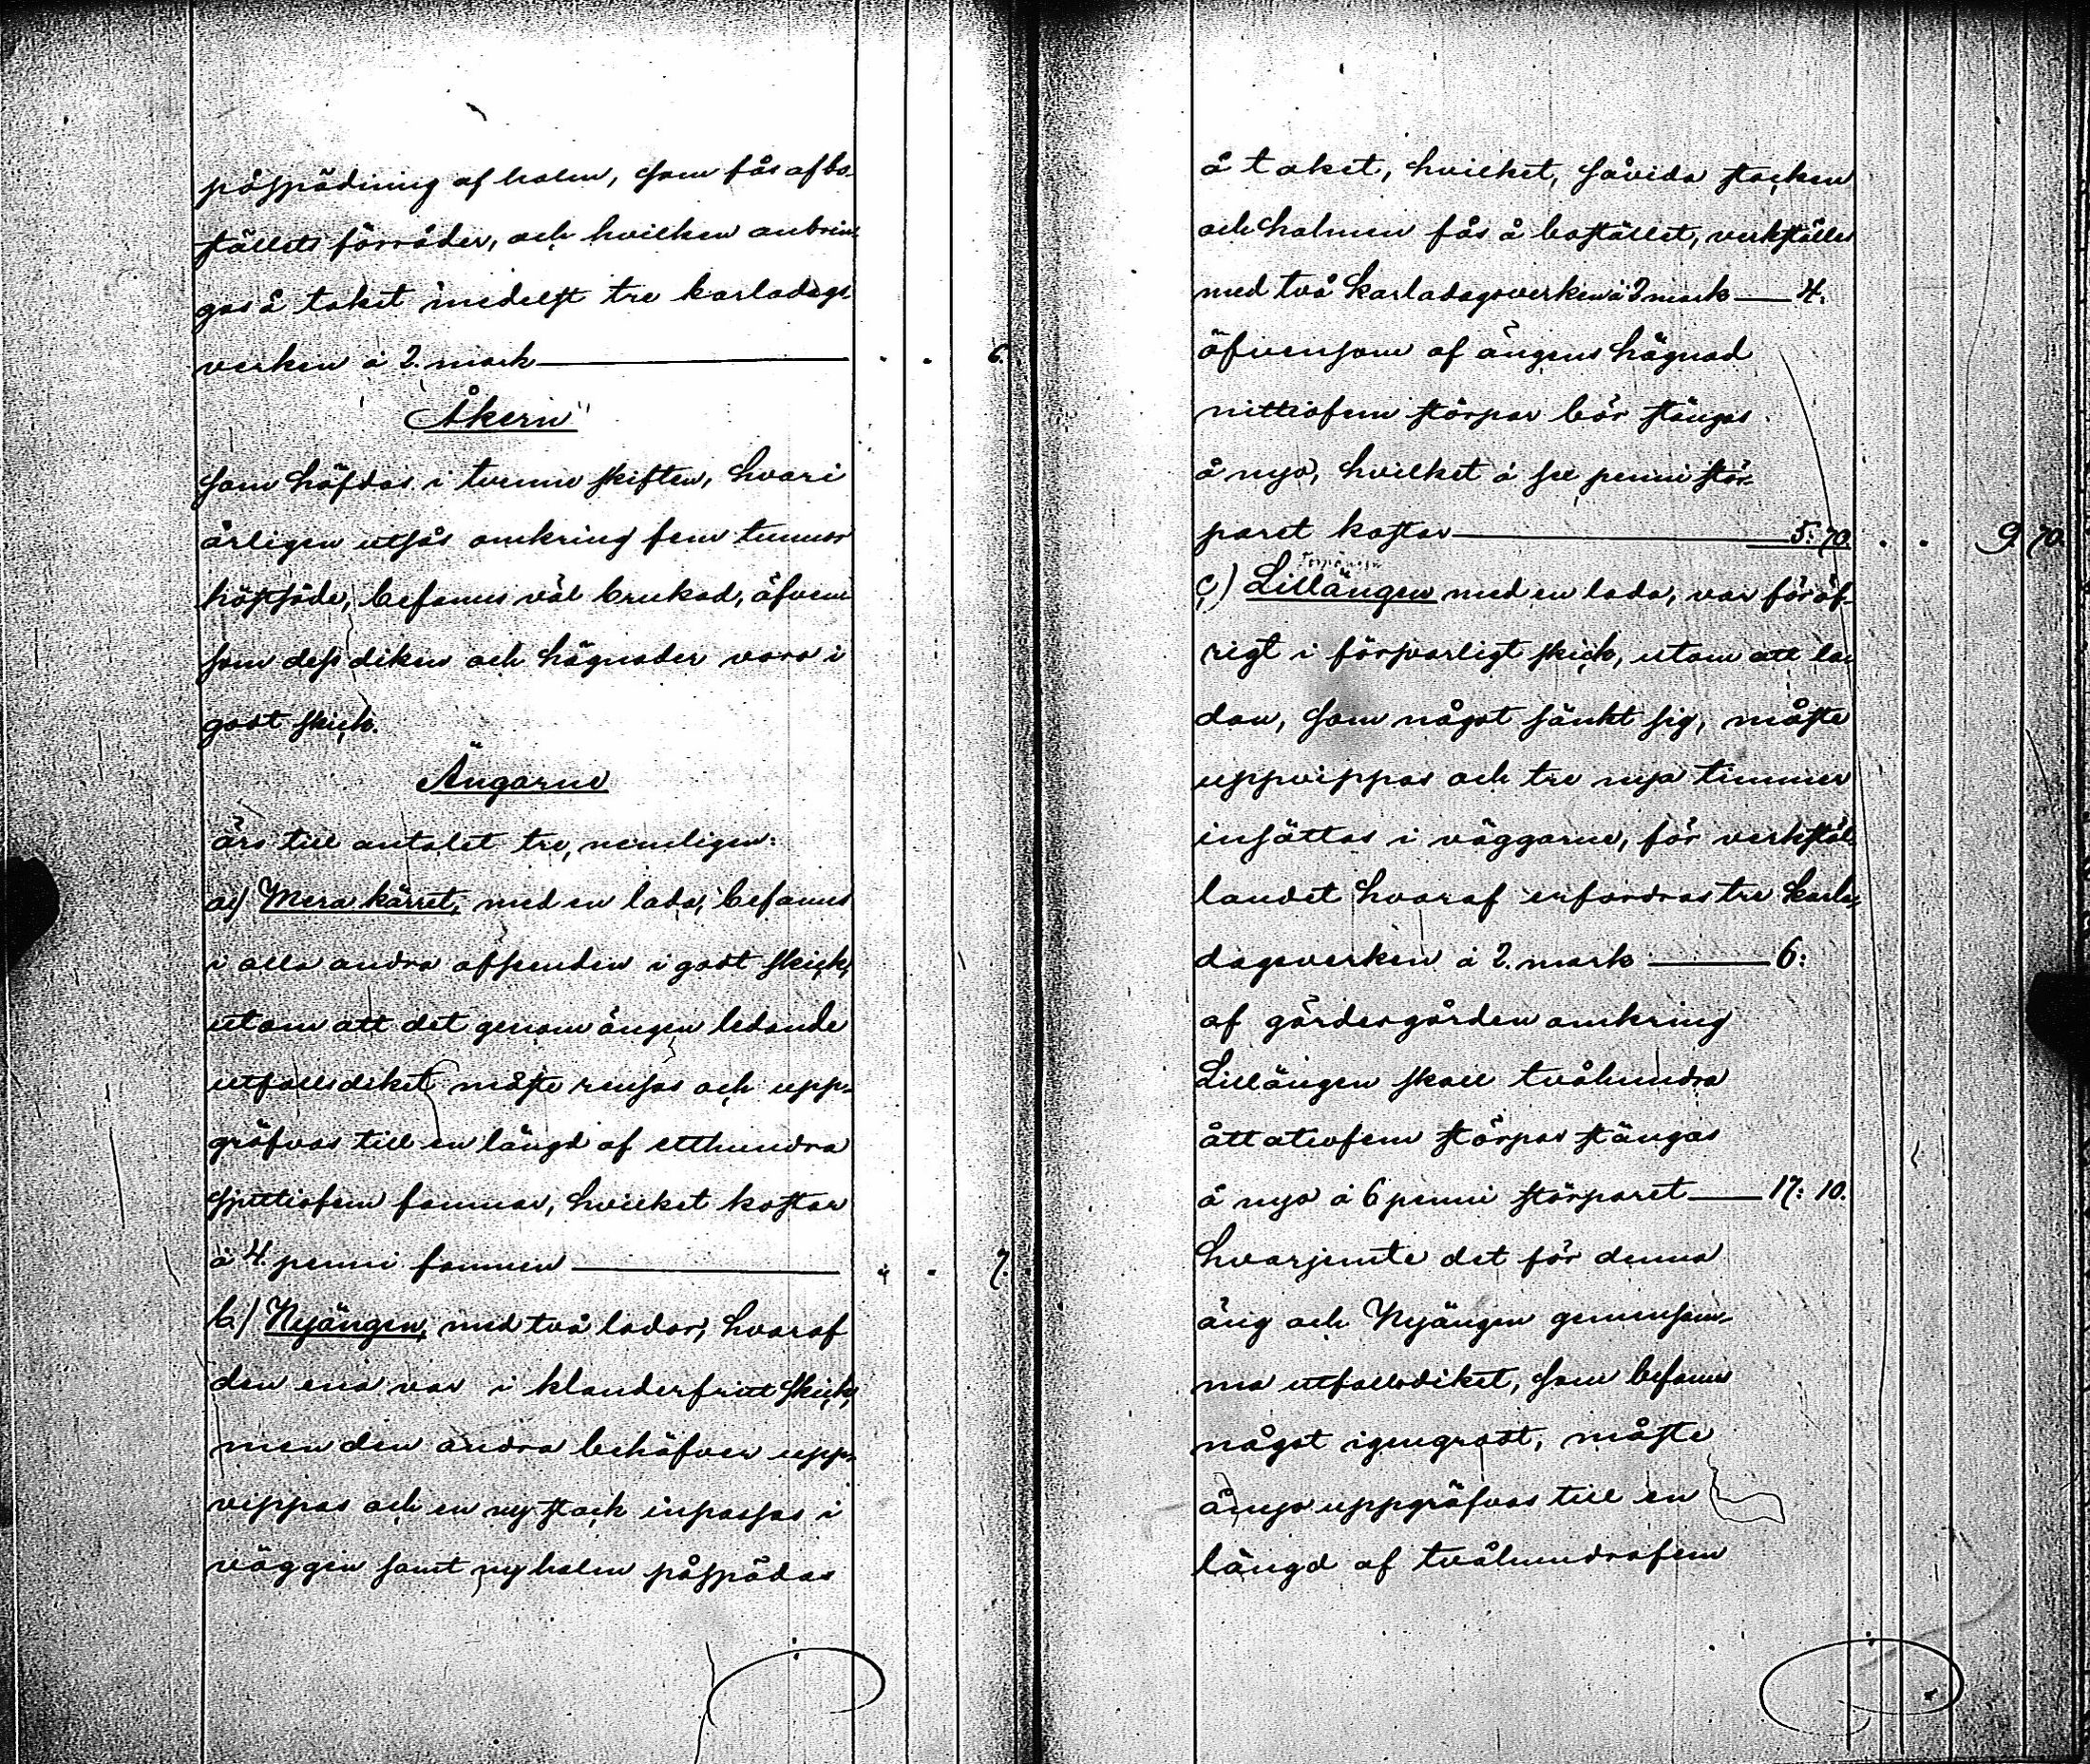 påspädning af halm, som fås af bo-
ställets förråder, och hvilken anbrin-
gas å taket medelst tre karladags-
verken à 2. mark 6.
Åkern
som häfdas i tvenne skiften, hvari
årligen utsås omkring fem tunnor
höstsäde, befanns väl brukad, äfven
som dess diken och hägnader voro i
godt skick.
Ängarne
äro till antalet tre, nemligen:
a) Mera kärret, med en lada, befanns
i alla andra afseenden i godt skick,
utom att det genom ängen ledande
utfallsdiket måste rensas och upp-
gräfvas till en längd af etthundra
sjuttiofem famnar, hvilket kostar
à 4. penni famnen 7.
b.) Nyängen, med två lador, hvaraf
den ena var i klanderfritt skick,
men den andra behöfver upp-
vippas och en ny stock inpassas i
väggen samt ny halm påspädas
å taket, hvilket, såvida stocken
och halmen fås å bostället, verkställes
med två karladagsverken à 2 mark 4.
äfvensom af ängens hägnad
nittiofem störpar bör stängas
å nyo, hvilket à sex penni stör-
paret kostar 5. 70. 9. 70.
c) Lillängen med en lada, var föröf-
rigt i försvarligt skick, utom att la-
dan, som något sänkt sig, måste
uppvippas och tre nya timmer
insättas i väggarne, för verkstäl-
landet hvaraf erfordras tre karla-
dagsverken à 2. mark 6:
af gärdesgården omkring
Lillängen skall tvåhundra
åttatiofem störpar stängas
å nyo à 6 penni störparet 17: 10.
hvarjemte det för denna
äng och Nyängen gemensam-
ma utfallsdiket, som befanns
något igengrodt, måste
ånyo uppgräfvas till en
längd af tvåhundrafem